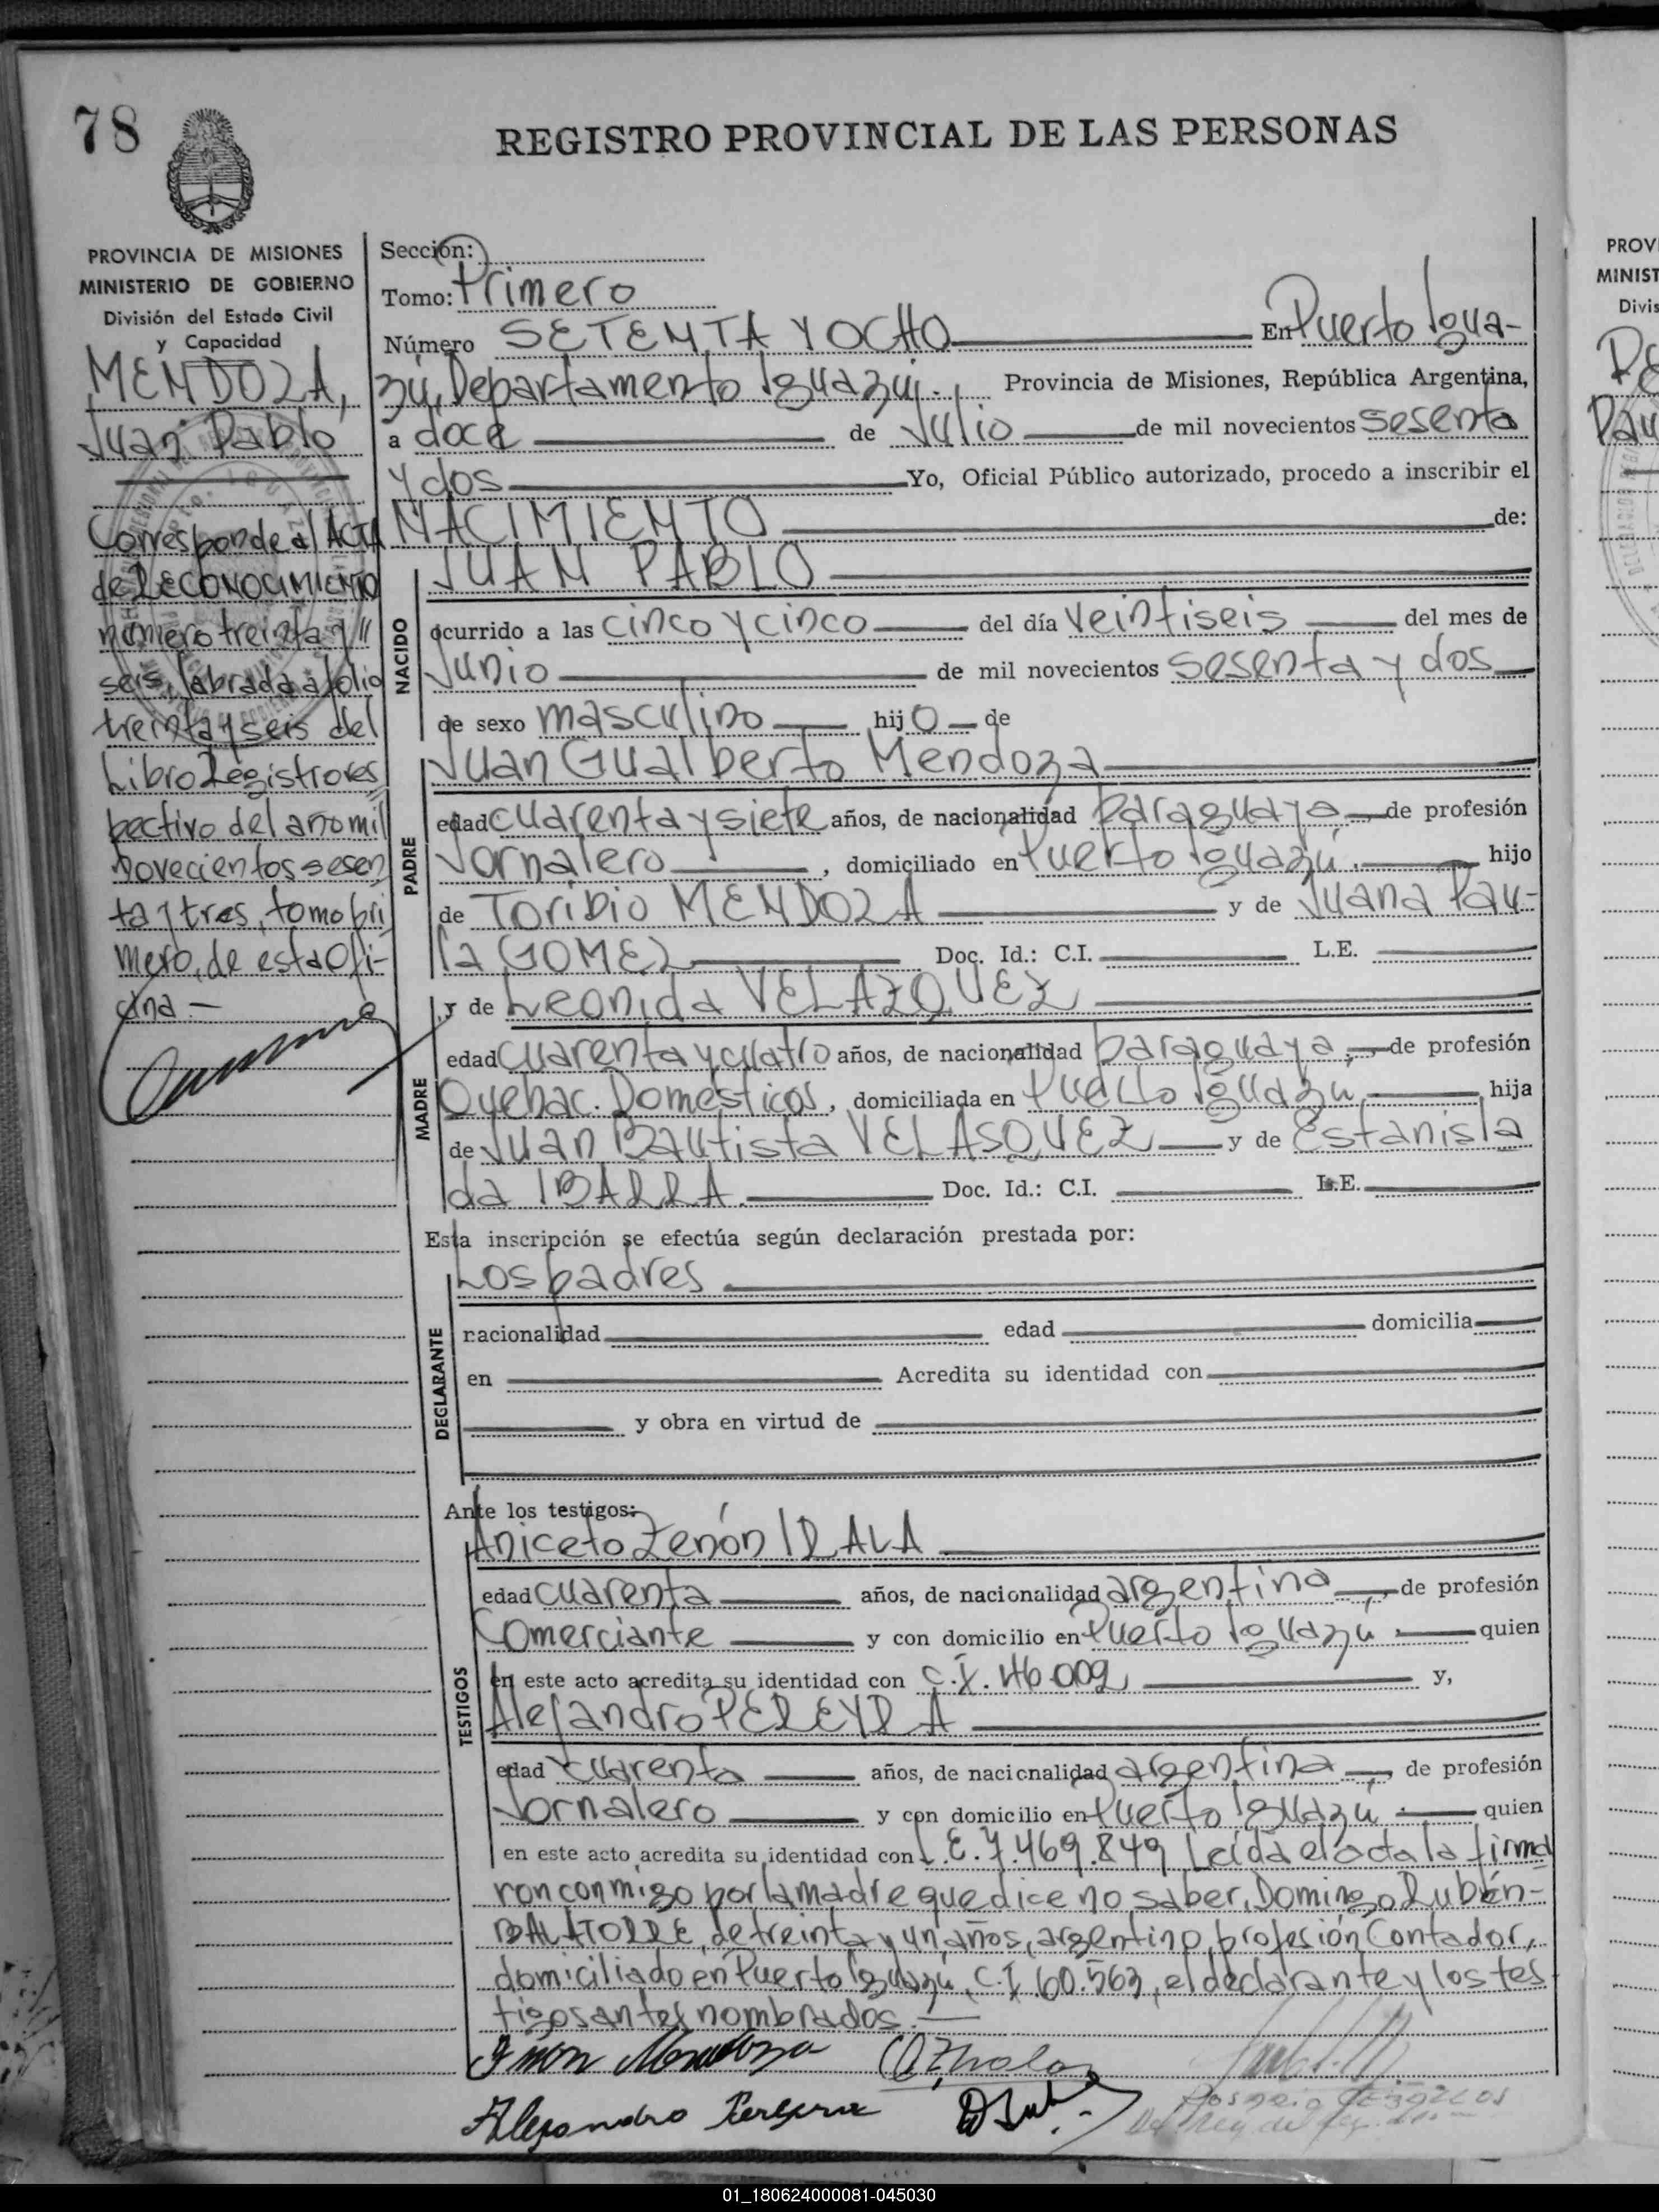 78
REGISTRO PROVINCIAL DE LAS PERSONAS
PROVINCIA DE MISIONES
MINISTERIO DE GOBIERNO
División del Estado Civil
y Capacidad
MENDOZA,
Juan Pablo
Corresponde al ACTA
de RECONOCIMIENTO
número treinta y //
seis, labrada a folio
treinta y seis del
Libro Registro res
pectivo del año mil
novecientos sesen
ta y tres, tomo pri
mero, de esta Ofi-
cina.-
Sección:
Tomo: Primero
Número SETENTA Y OCHO En Puerto Igua-
zú, Departamento Iguazú. Provincia de Misiones, República Argentina,
a doce de Julio de mil novecientos sesenta
y dos Yo, Oficial Público autorizado, procedo a inscribir el
NACIMIENTO de:
JUAN PABLO
NACIDO
ocurrido a las cinco y cinco del día veintiseis del mes de
Junio de mil novecientos sesenta y dos
de sexo masculino hijo de
Juan Gualberto Mendoza
PADRE
edad cuarenta y siete años, de nacionalidad paraguaya, de profesión
Jornalero, domiciliado en Puerto Iguazú. hijo
de Toribio MENDOZA y de Juana Pau-
la GOMEZ Doc. Id.: C.I. L.E.
y de Leonida VELAZQUEZ
MADRE
edad cuarenta y cuatro años, de nacionalidad paraguaya, de profesión
Quehac. Domesticos, domiciliada en Puerto Iguazu, hija
de Juan Bautista VELASQUEZ y de Estanisla
da IBARRA. Doc. Id.: C.I. L.E.
Esta inscripción se efectúa según declaración prestada por:
Los padres
DECLARANTE
nacionalidad edad domicilia
en Acredita su identidad con
y obra en virtud de
Ante los testigos:
Aniceto Zenón IRALA
TESTIGOS
edad cuarenta años, de nacionalidad argentina, de profesión
Comerciante y con domicilio en Puerto Iguazú. quien
en este acto acredita su identidad con C.I. 46.002 y,
Alejandro PEREYRA
edad cuarenta años, de nacionalidad argentina, de profesión
Jornalero y con domicilio en Puerto Iguazú. quien
en este acto acredita su identidad con L.E. 7.469.849 Leída el acta la firma
ron conmigo por la madre que dice no saber, Domingo Rubén-
BALATORRE, de treinta y un años, argentino, profesión Contador,
domiciliado en Puerto Iguazú, C.I. 60.563, el declarante y los tes
tigos antes nombrados.
Juan Mendoza
Alejandro Pereyra
PROVI
MINIST
Divis
01_180624000081-045030